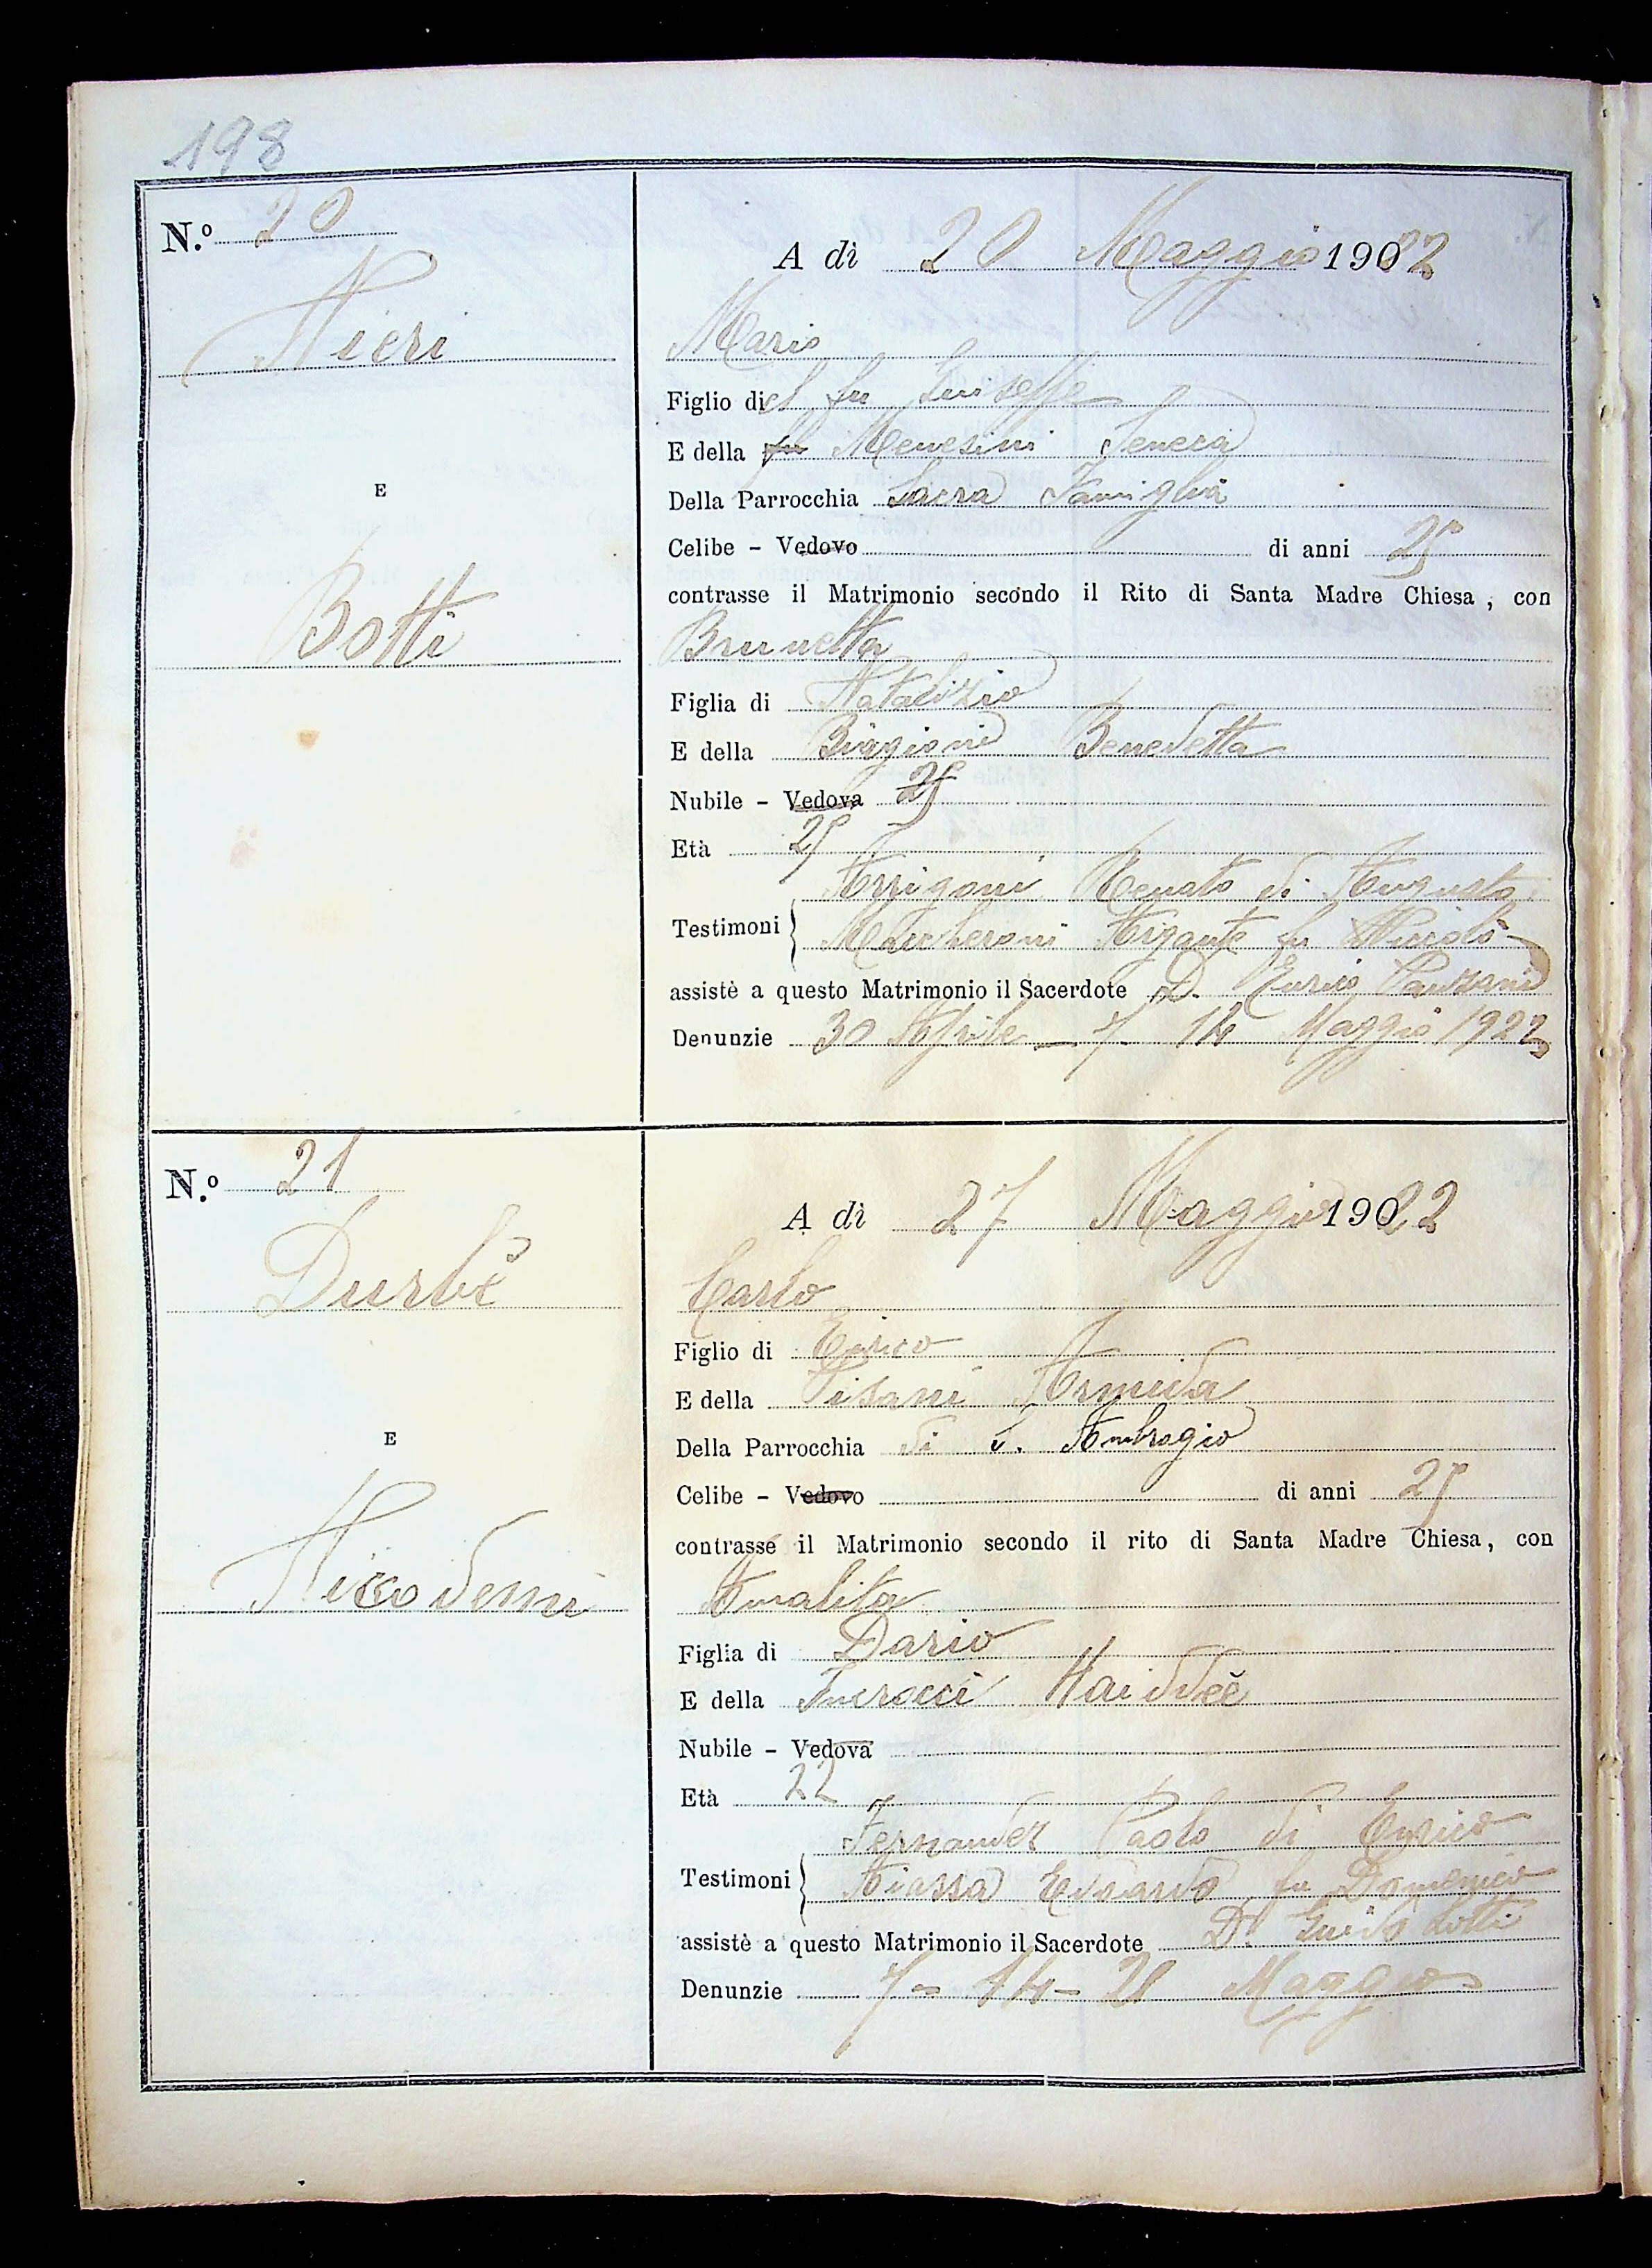 198
N.º 20
A dì 20 Maggio 1922
Nieri
Mario
Figlio del fu Giuseppe
E della fu Menesini Seneca
Della Parrocchia Sacra Famiglia
E
Celibe - Vedovo di anni 25
contrasse il Matrimonio secondo il Rito di Santa Madre Chiesa, con
Botti
Brunetta
Figlia di Natalizio
E della Biagioni Benedetta
Nubile - Vedova 25
Età 25
Arrigoni Renato di Augusto
Testimoni Argante fu Niccolò
assistè a questo Matrimonio il Sacerdote D. Enrico
Denunzie 30 Aprile - 7 14 Maggio 1922
N.º 21
A dì 27 Maggio 1922
Durbè
Carlo
Figlio di Enrico
E della Pisani Armida
Della Parrocchia di S. Ambrogio
E
Celibe - Vedovo di anni 25
contrasse il Matrimonio secondo il rito di Santa Madre Chiesa, con
Niccodemi
Amalita
Figlia di Dario
E della Incrocci Haiddèe
Nubile - Vedova
Età 22
Fernandez Paolo di Enrico
Testimoni Edoardo fu Domenico
assistè a questo Matrimonio il Sacerdote D. Guido Lotti
Denunzie 7 - 14 - 21 Maggio